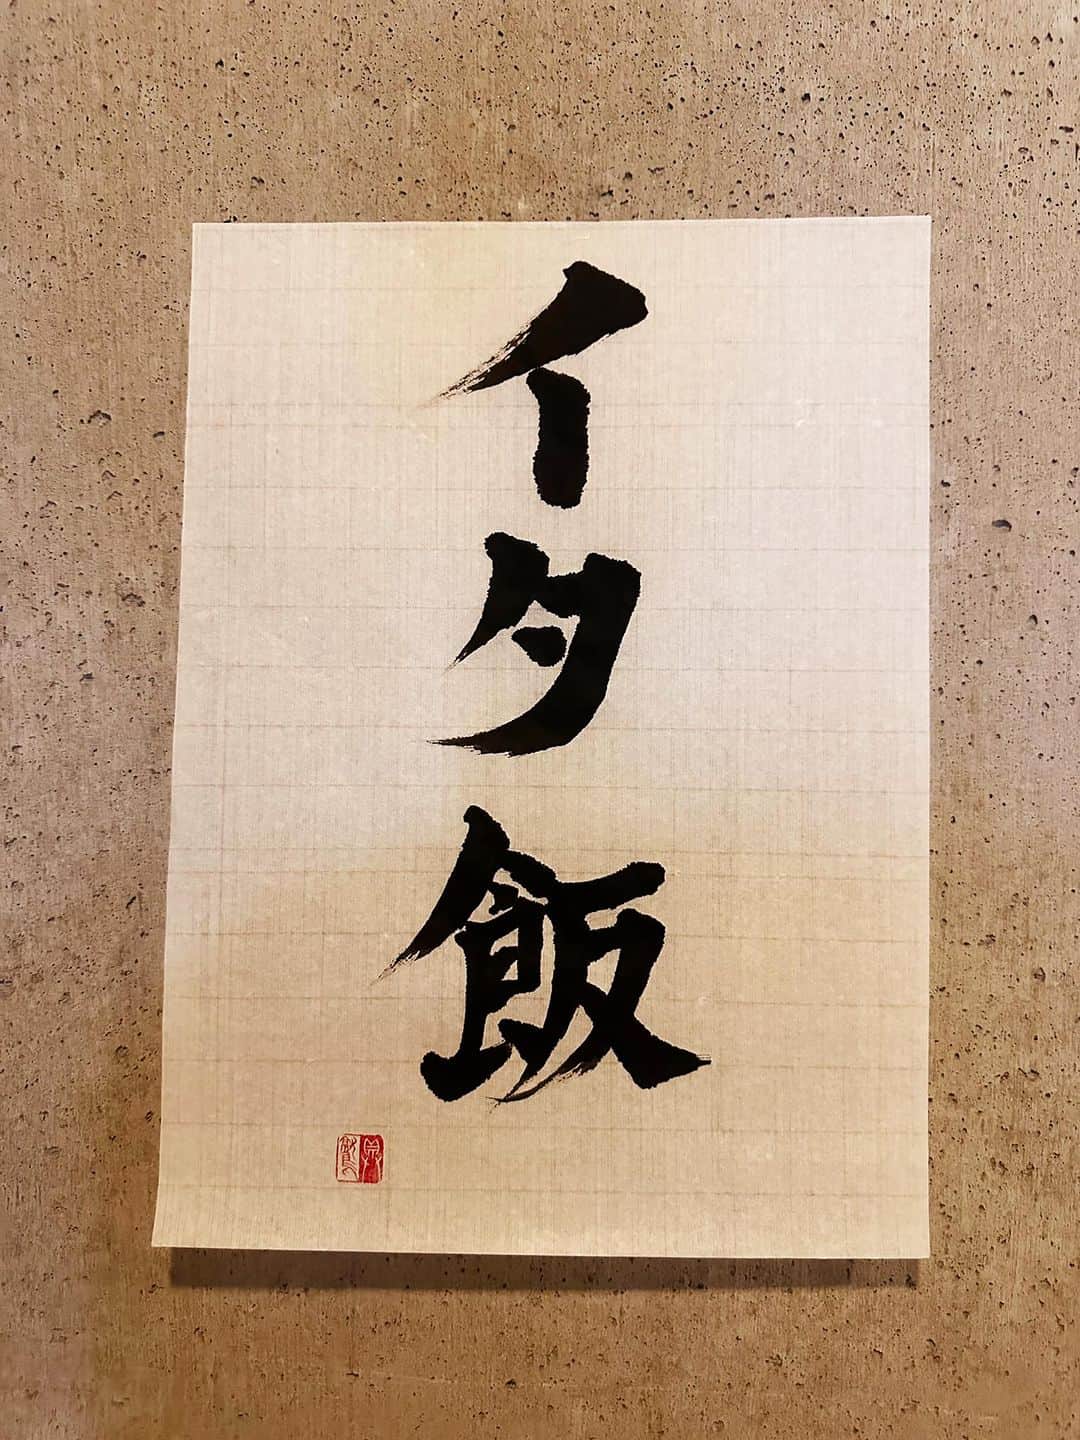 イタ飯